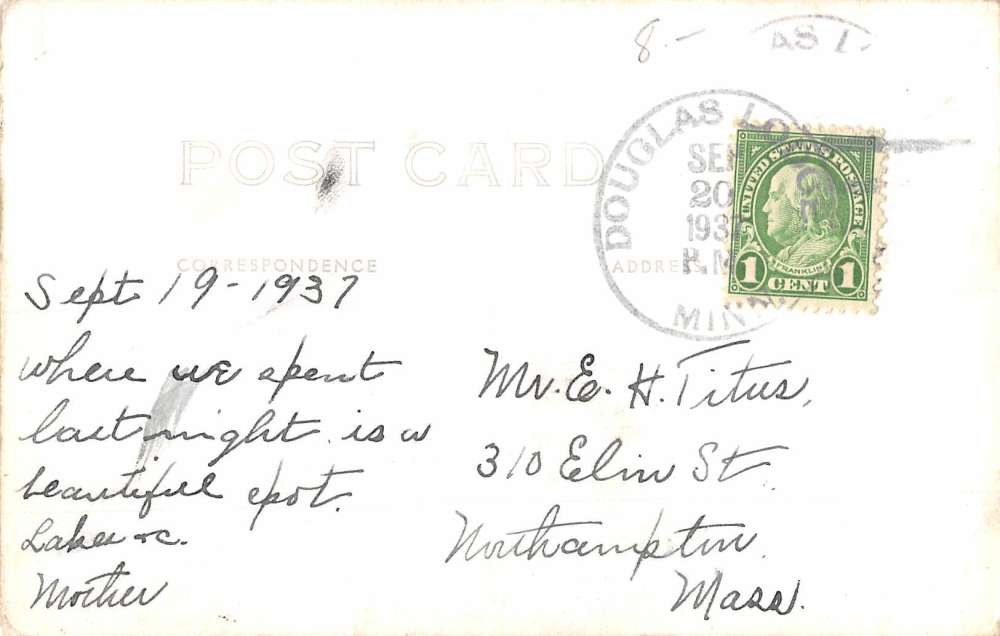 8-
AS L
POST CARD
DOUGLAS LODGE
SEP
20
1937
P.M.
MINN.
UNITED STATES POSTAGE
FRANKLIN
1 CENT 1
CORRESPONDENCE
ADDRESS
Sept 19-1937
where we spent
last night is a
beautiful spot.
Lakes &c.
Mother
Mr. E. H. Titus,
310 Elm St.
Northampton
Mass.